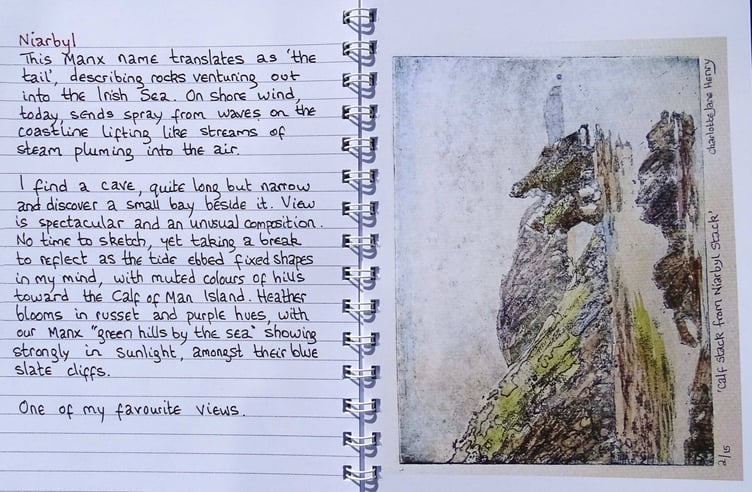 Niarbyl
This Manx name translates as 'the
tail', describing rocks venturing out
into the Irish Sea. On shore wind,
today, sends spray from waves on the
coastline lifting like streams of
steam pluming into the air.
I find a cave, quite long but narrow
and discover a small bay beside it. View
is spectacular and an unusual composition.
No time to sketch, yet taking a break
to reflect as the tide ebbed fixed shapes
in my mind, with muted colours of hills
toward the Calf of Man Island. Heather
blooms in russet and purple hues, with
our Manx "green hills by the sea" showing
strongly in sunlight, amongst their blue
slate cliffs.
One of my favourite views.
2/15
'Calf stack from Niarbyl Stack'
Charlotte Jane Henry